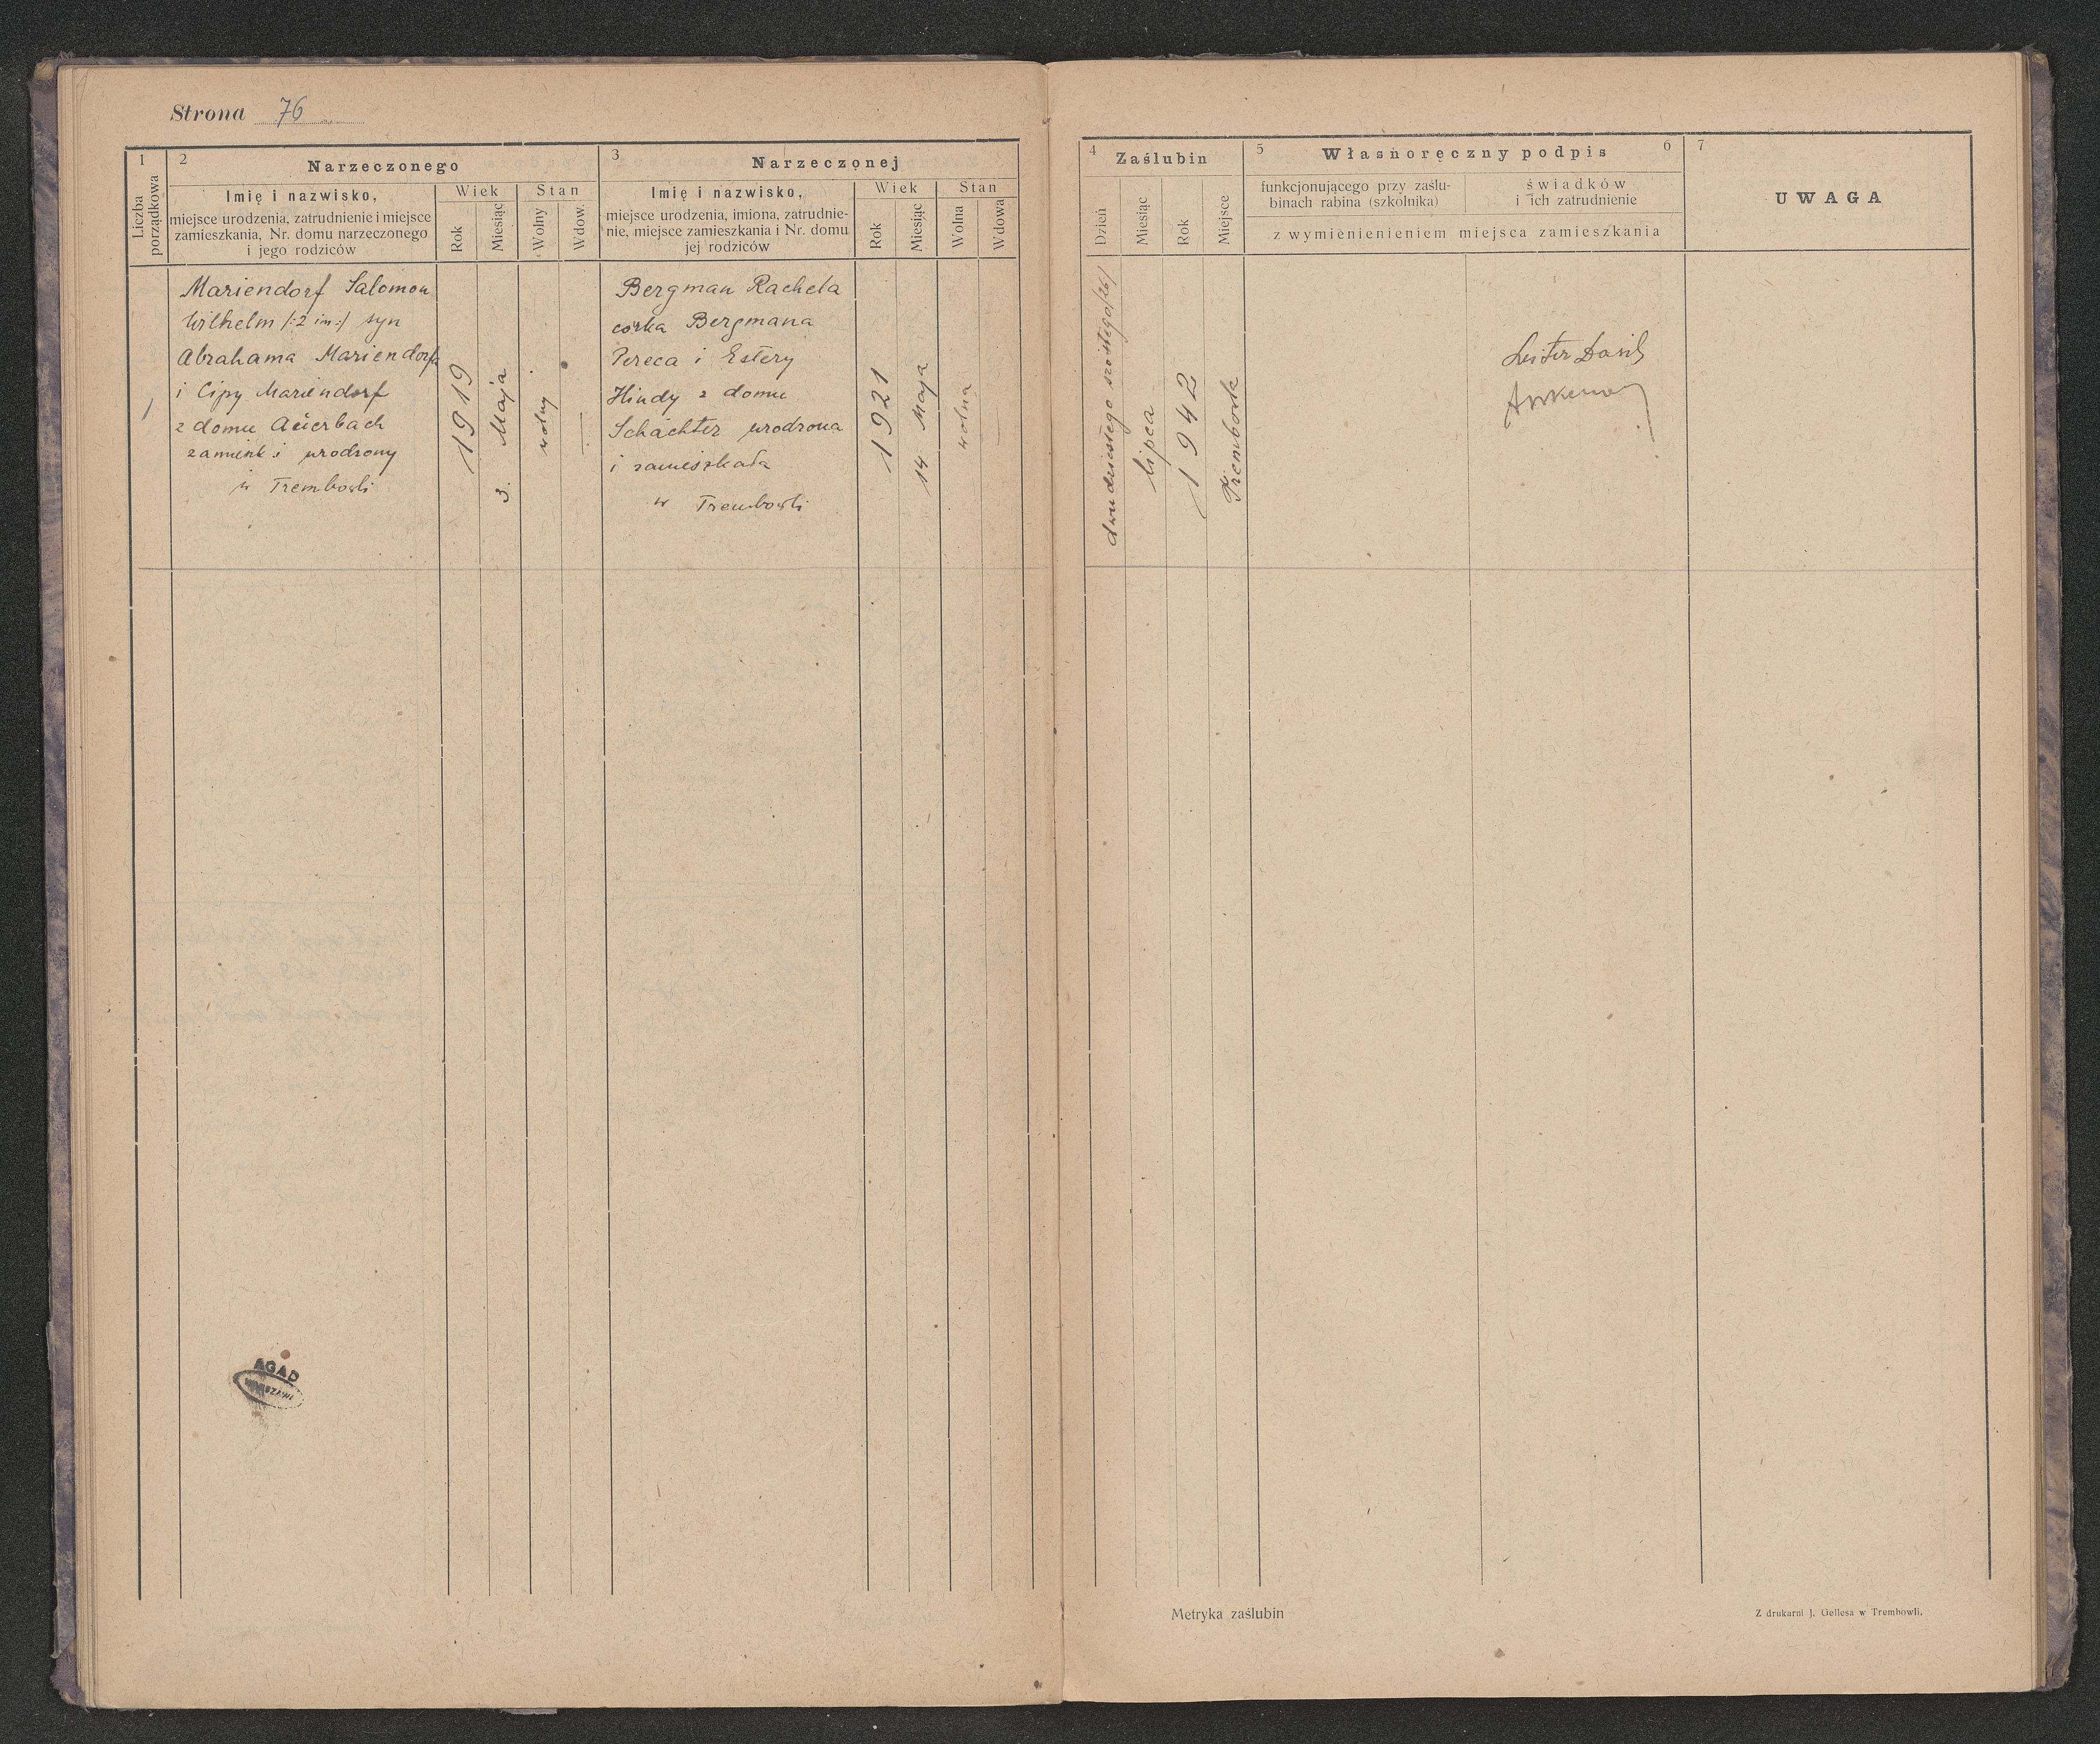 Strona 76
1
Liczba porządkowa
2
Narzeczonego
Imię i nazwisko,
miejsce urodzenia, zatrudnienie i miejsce
zamieszkania, Nr. domu narzeczonego
i jego rodziców
Wiek
Rok
Miesiąc
Stan
Wolny
Wdow.
3
Narzeczonej
Imię i nazwisko,
miejsce urodzenia, imiona, zatrudnie-
nie, miejsce zamieszkania i Nr. domu
jej rodziców
Wiek
Rok
Miesiąc
Stan
Wolna
Wdowa
4
Zaślubin
Dzień
Miesiąc
Rok
Miejsce
5
Własnoręczny podpis
6
funkcjonującego przy zaślu-
binach rabina (szkolnika)
świadków
i ich zatrudnienie
z wymienienieniem miejsca zamieszkania
7
UWAGA
1
Mariendorf Salomon
Wilhelm /:2 im:/ syn
Abrahama Mariendorfa
i Cipy Mariendorf
z domu Auerbach
zamieszk. i urodzony
w Trembowli
1919
3. Maja
wolny
Bergman Rachela
córka Bergmana
Pereca i Estery
Hindy z domu
Schächter urodzona
i zamieszkała
w Trembowli
1921
14 Maja
wolna
dwudziestego szóstego /26/
lipca
1942
Trembowla
AGAD
WARSZAWA
Metryka zaślubin
Z drukarni J. Gellesa w Trembowli.